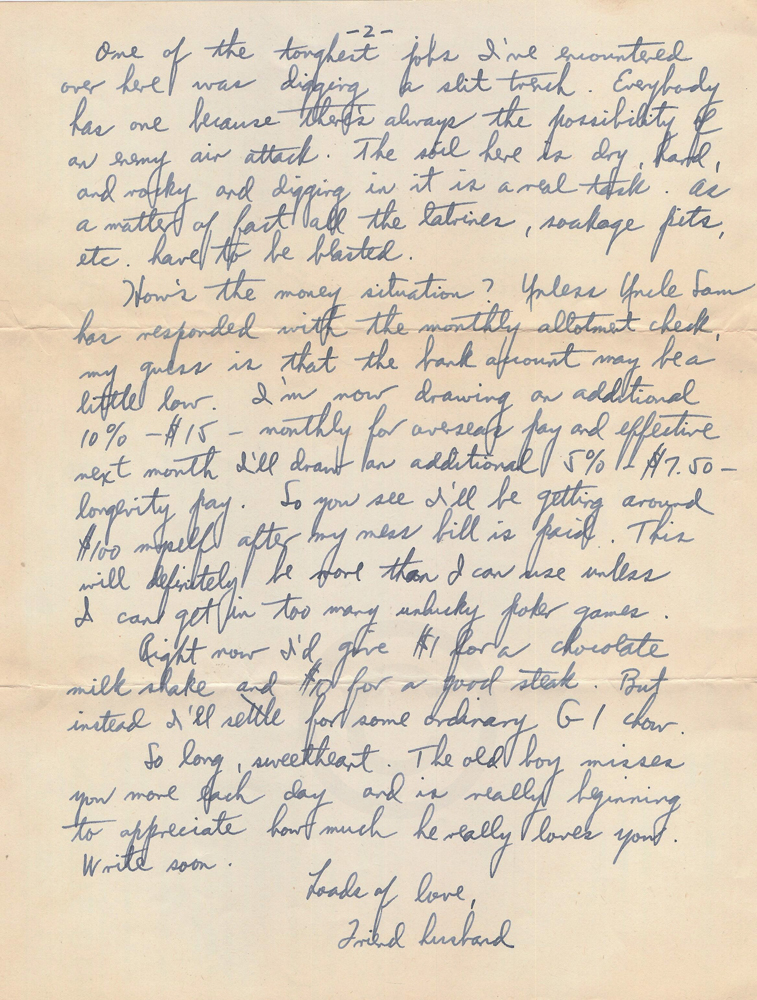 -2-
One of the toughest jobs I've encountered
over here was digging a slit trench. Everybody
has one because there's always the possibility of
an enemy air attack. The soil here is dry, hard,
and rocky and digging in it is a real task. As
a matter of fact all the latrines, soakage pits,
etc. have to be blasted.
How's the money situation? Unless Uncle Sam
has responded with the monthly allotment check,
my guess is that the bank account may be a
little low. I'm now drawing an additional
10% - $15 - monthly for overseas pay and effective
next month I'll draw an additional 5% - $7.50 -
longevity pay. So you see I'll be getting around
$100 myself after my mess bill is paid. This
will definitely be more than I can use unless
I can get in too many unlucky poker games.
Right now I'd give $1 for a chocolate
milk shake and for a good steak. But
instead I'll settle for some ordinary G I chow.
So long, sweetheart. The old boy misses
you more each day and is really beginning
to appreciate how much he really loves you.
Write soon.
Loads of love,
Friend husband